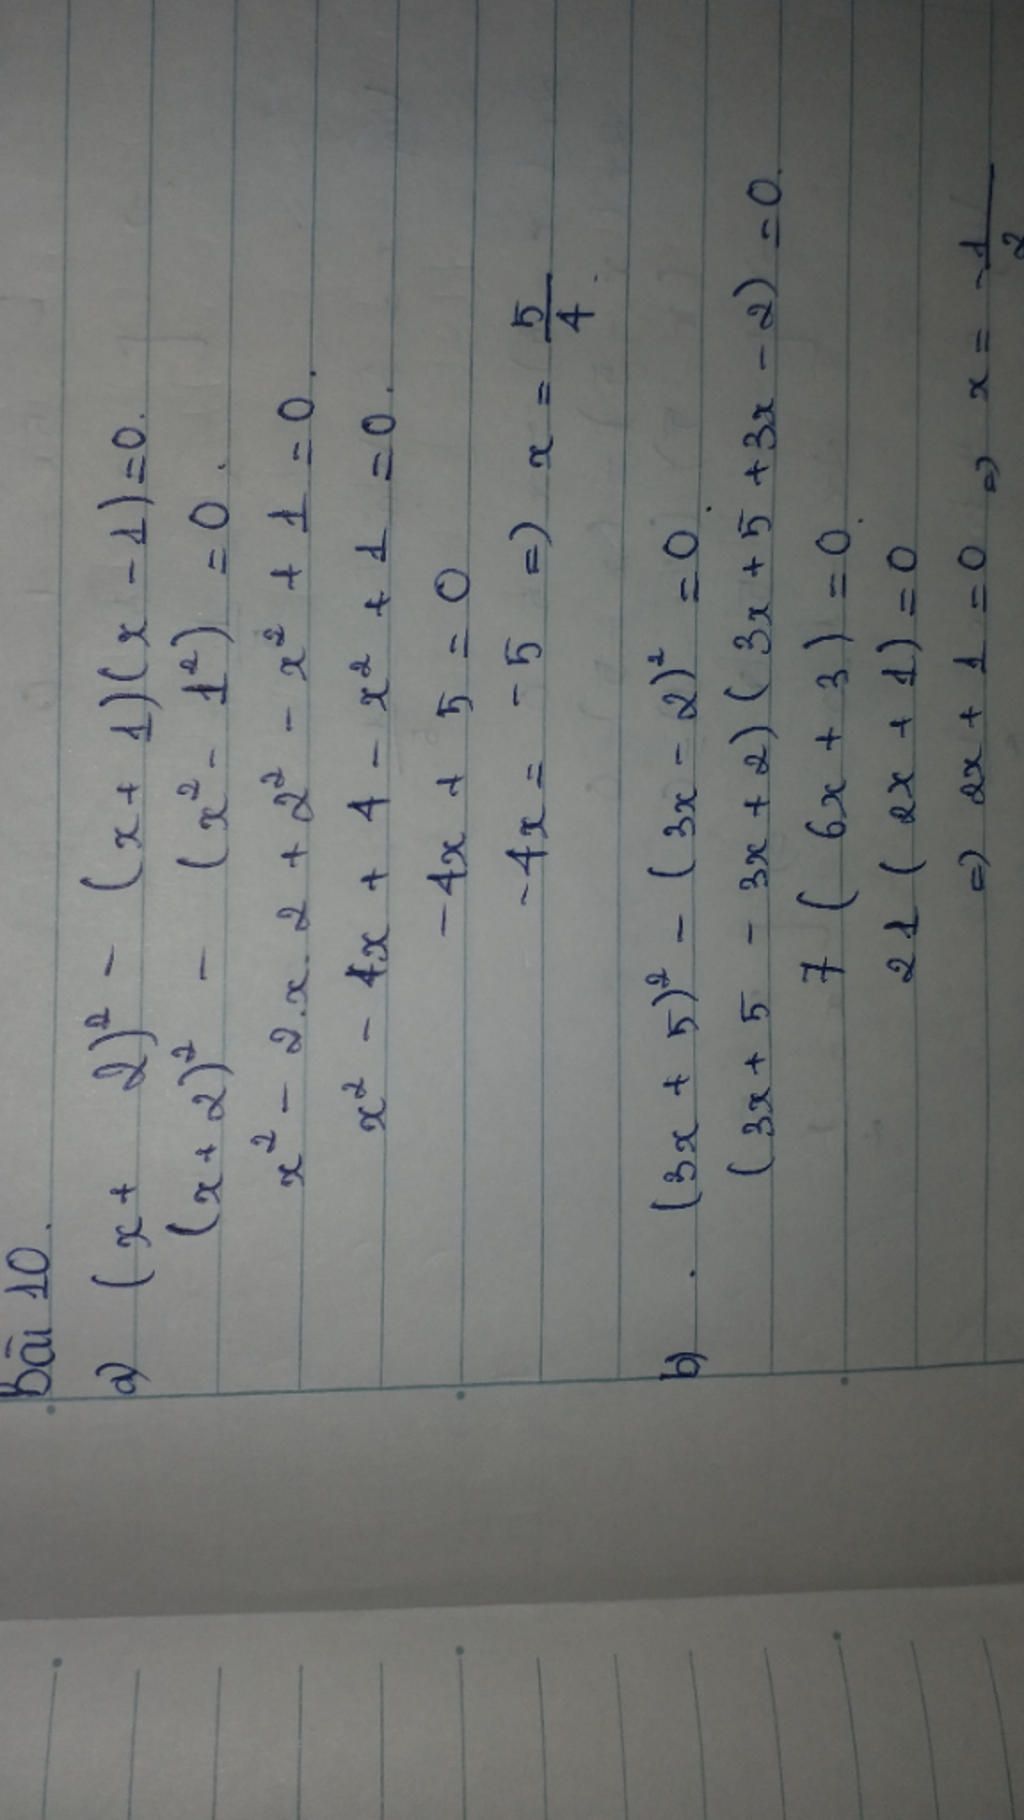 Bài 10.
a) (x + 2)² - (x + 1)(x - 1) = 0.
(x + 2)² - (x² - 1²) = 0.
x² - 2.x.2 + 2² - x² + 1 = 0.
x² - 4x + 4 - x² + 1 = 0.
-4x + 5 = 0
-4x = -5 => x = 5/4.
b) . (3x + 5)² - (3x - 2)² = 0.
(3x + 5 - 3x + 2)(3x + 5 + 3x - 2) = 0.
7 ( 6x + 3 ) = 0.
21 ( 2x + 1 ) = 0
=> 2x + 1 = 0 => x = -1/2